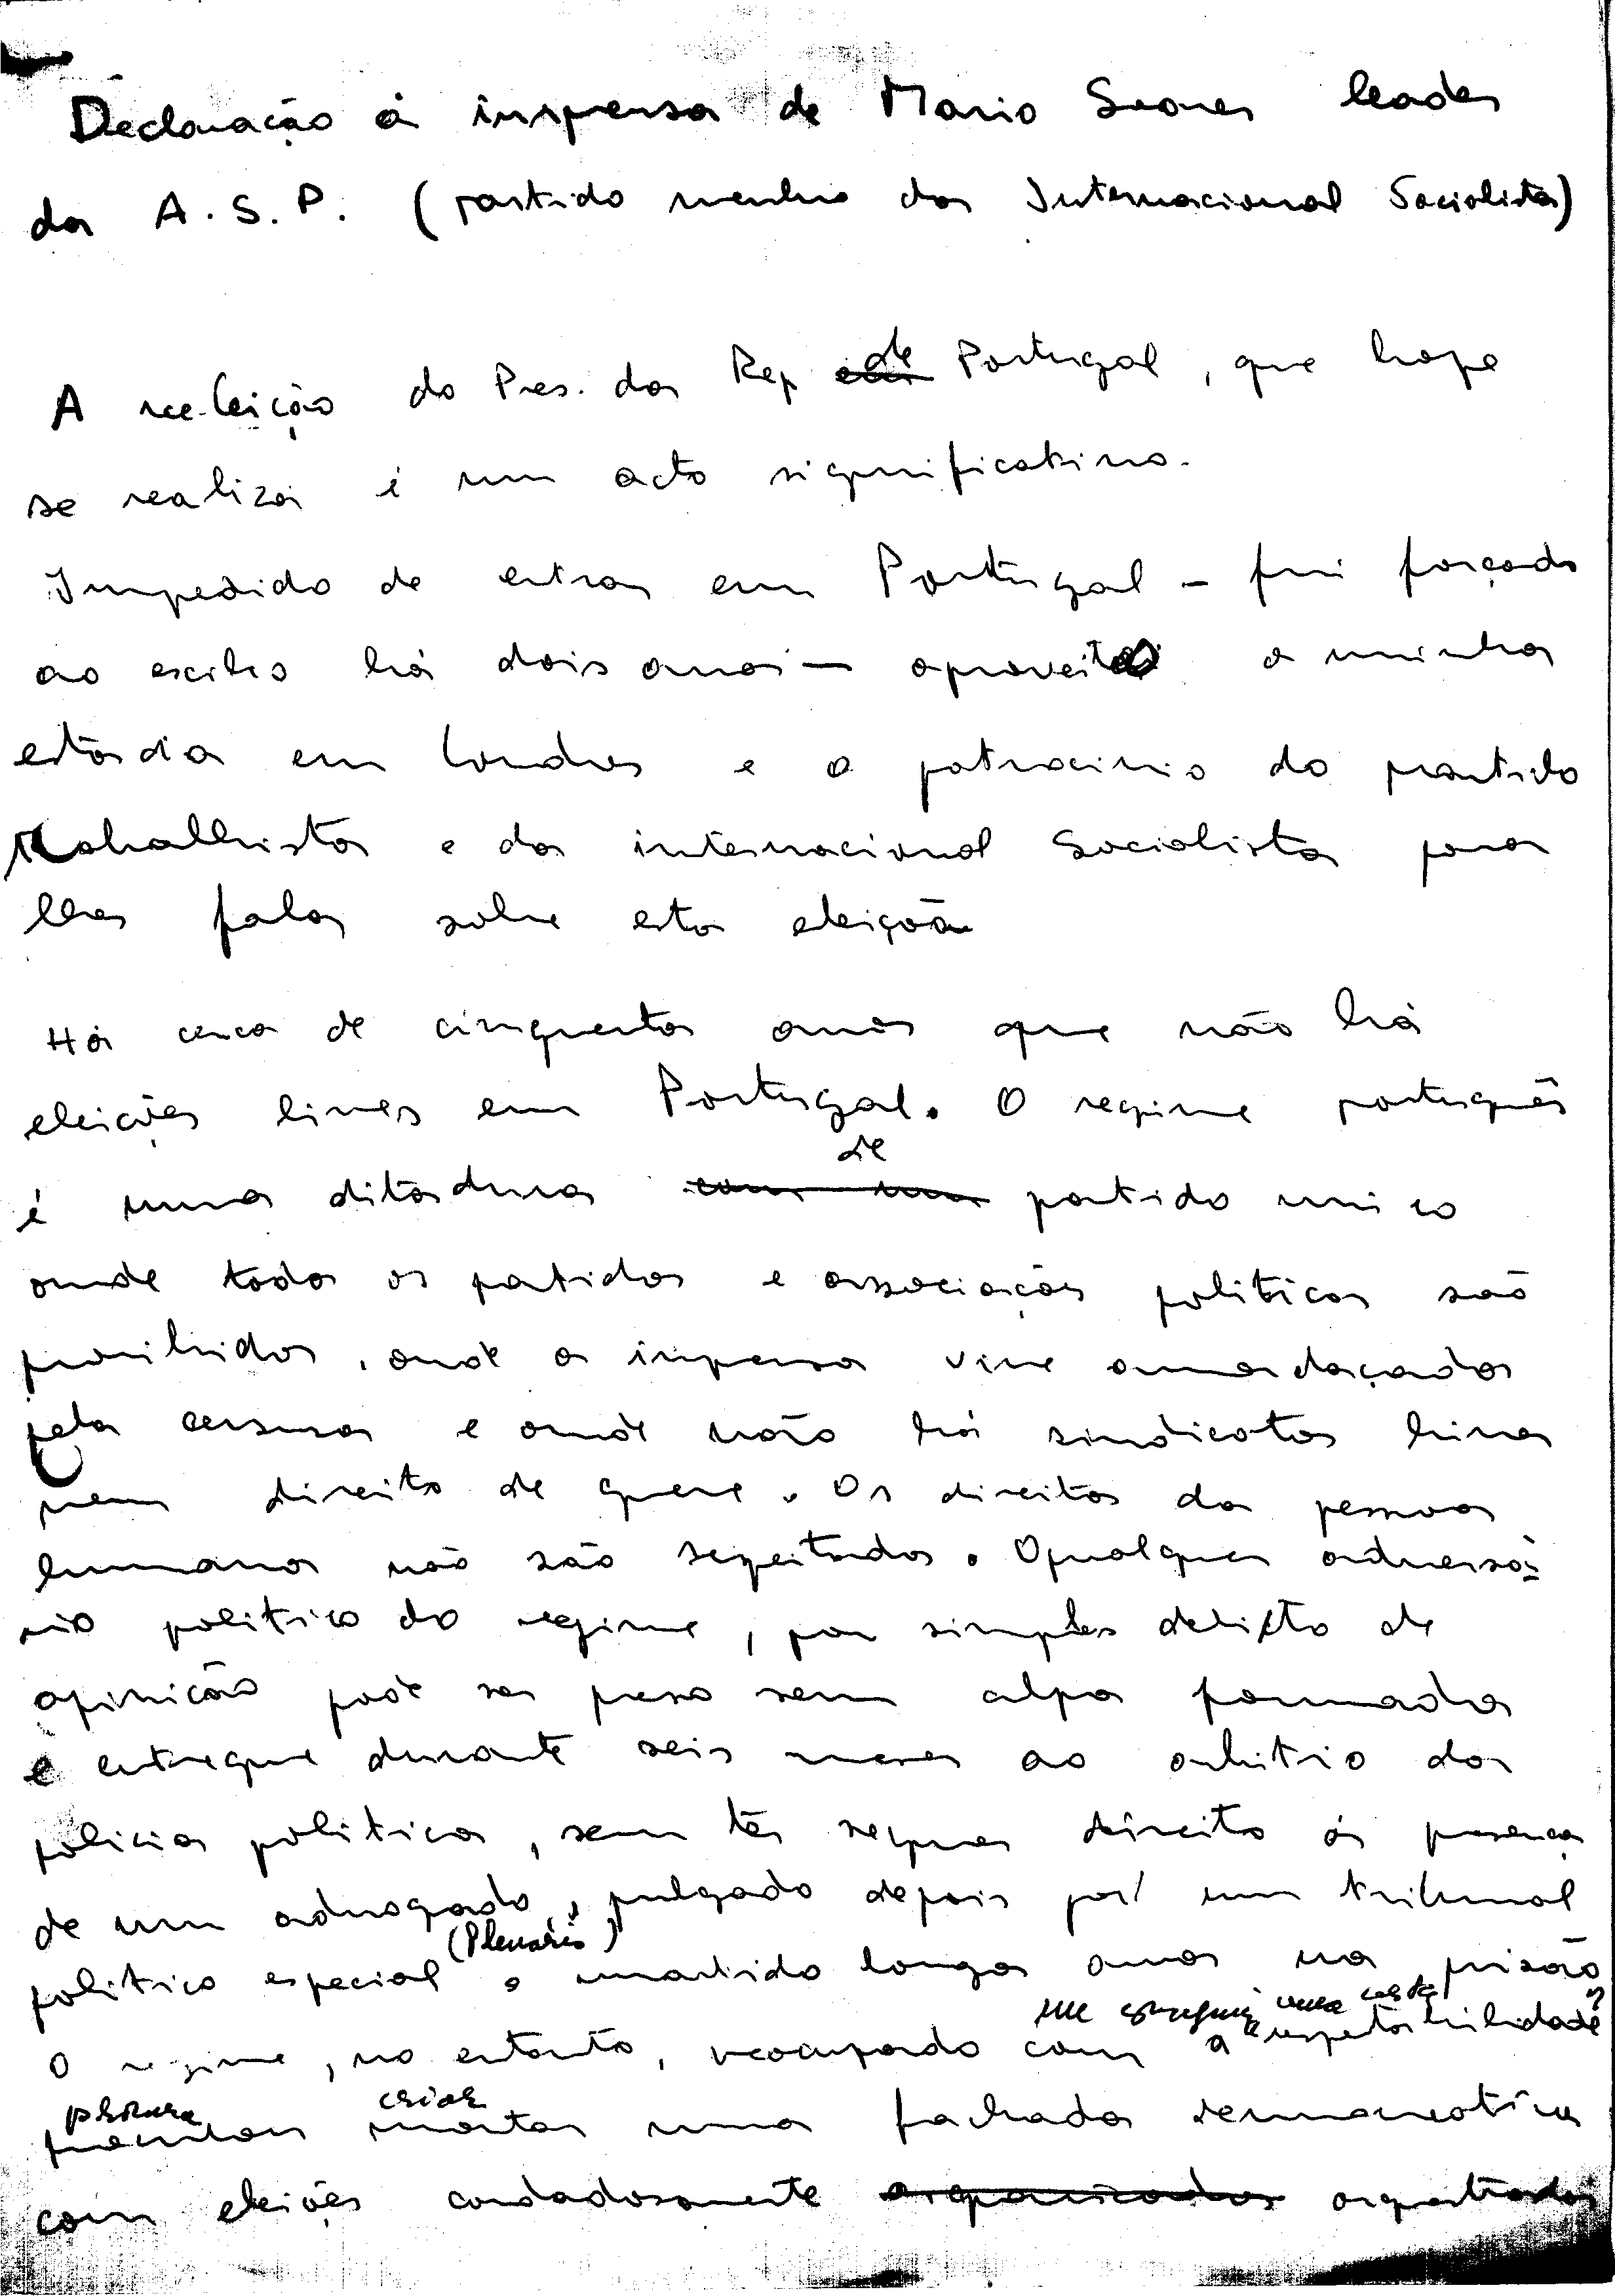 Declaração á imprensa de Mario Soares leader
da A.S.P. (partido membro da Internacional Socialista)
A reeleição do Pres. da Rep de Portugal, que hoje
se realiza é um acto significativo.
Impedido de entrar em Portugal - fui forçado
ao exilio há dois anos - aproveito a minha
estadia em Londres e o patrocinio do partido
trabalhista e da internacional Socialista para
lhes falar sobre esta eleição
Há cerca de cinquenta anos que não há
eleições livres em Portugal. O regime português
de
é uma ditadura com um partido unico
onde todos os partidos e associações politicas são
proibidos, onde a imprensa vive amordaçada
pela censura e onde não há sindicatos livres
nem direito de greve. Os direitos da pessoa
humana não são respeitados. Qualquer adversá-
rio politico do regime, por simples delicto de
opinião pode ser preso sem culpa formada
e entregue durante seis meses ao arbitrio da
policia politica, sem ter sequer direito á presença
de um advogado, julgado depois por um tribunal
(Plenário)
politico especial e mantido longos anos na prisão
em conseguir uma certa
O regime, no entanto, preocupado com a "respeitabilidade"
procura criar
montar uma fachada democratica
com eleições cuidadosamente organizadas orquestradas